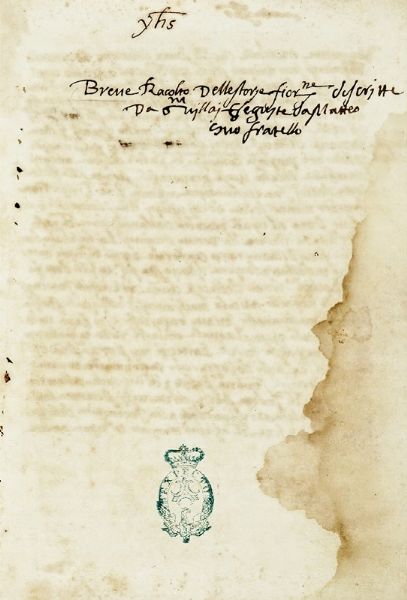 yhs
Breve Racolto Delle storie fior.ne descritte
Da G.ni villaj e seguite da Matteo
suo fratello